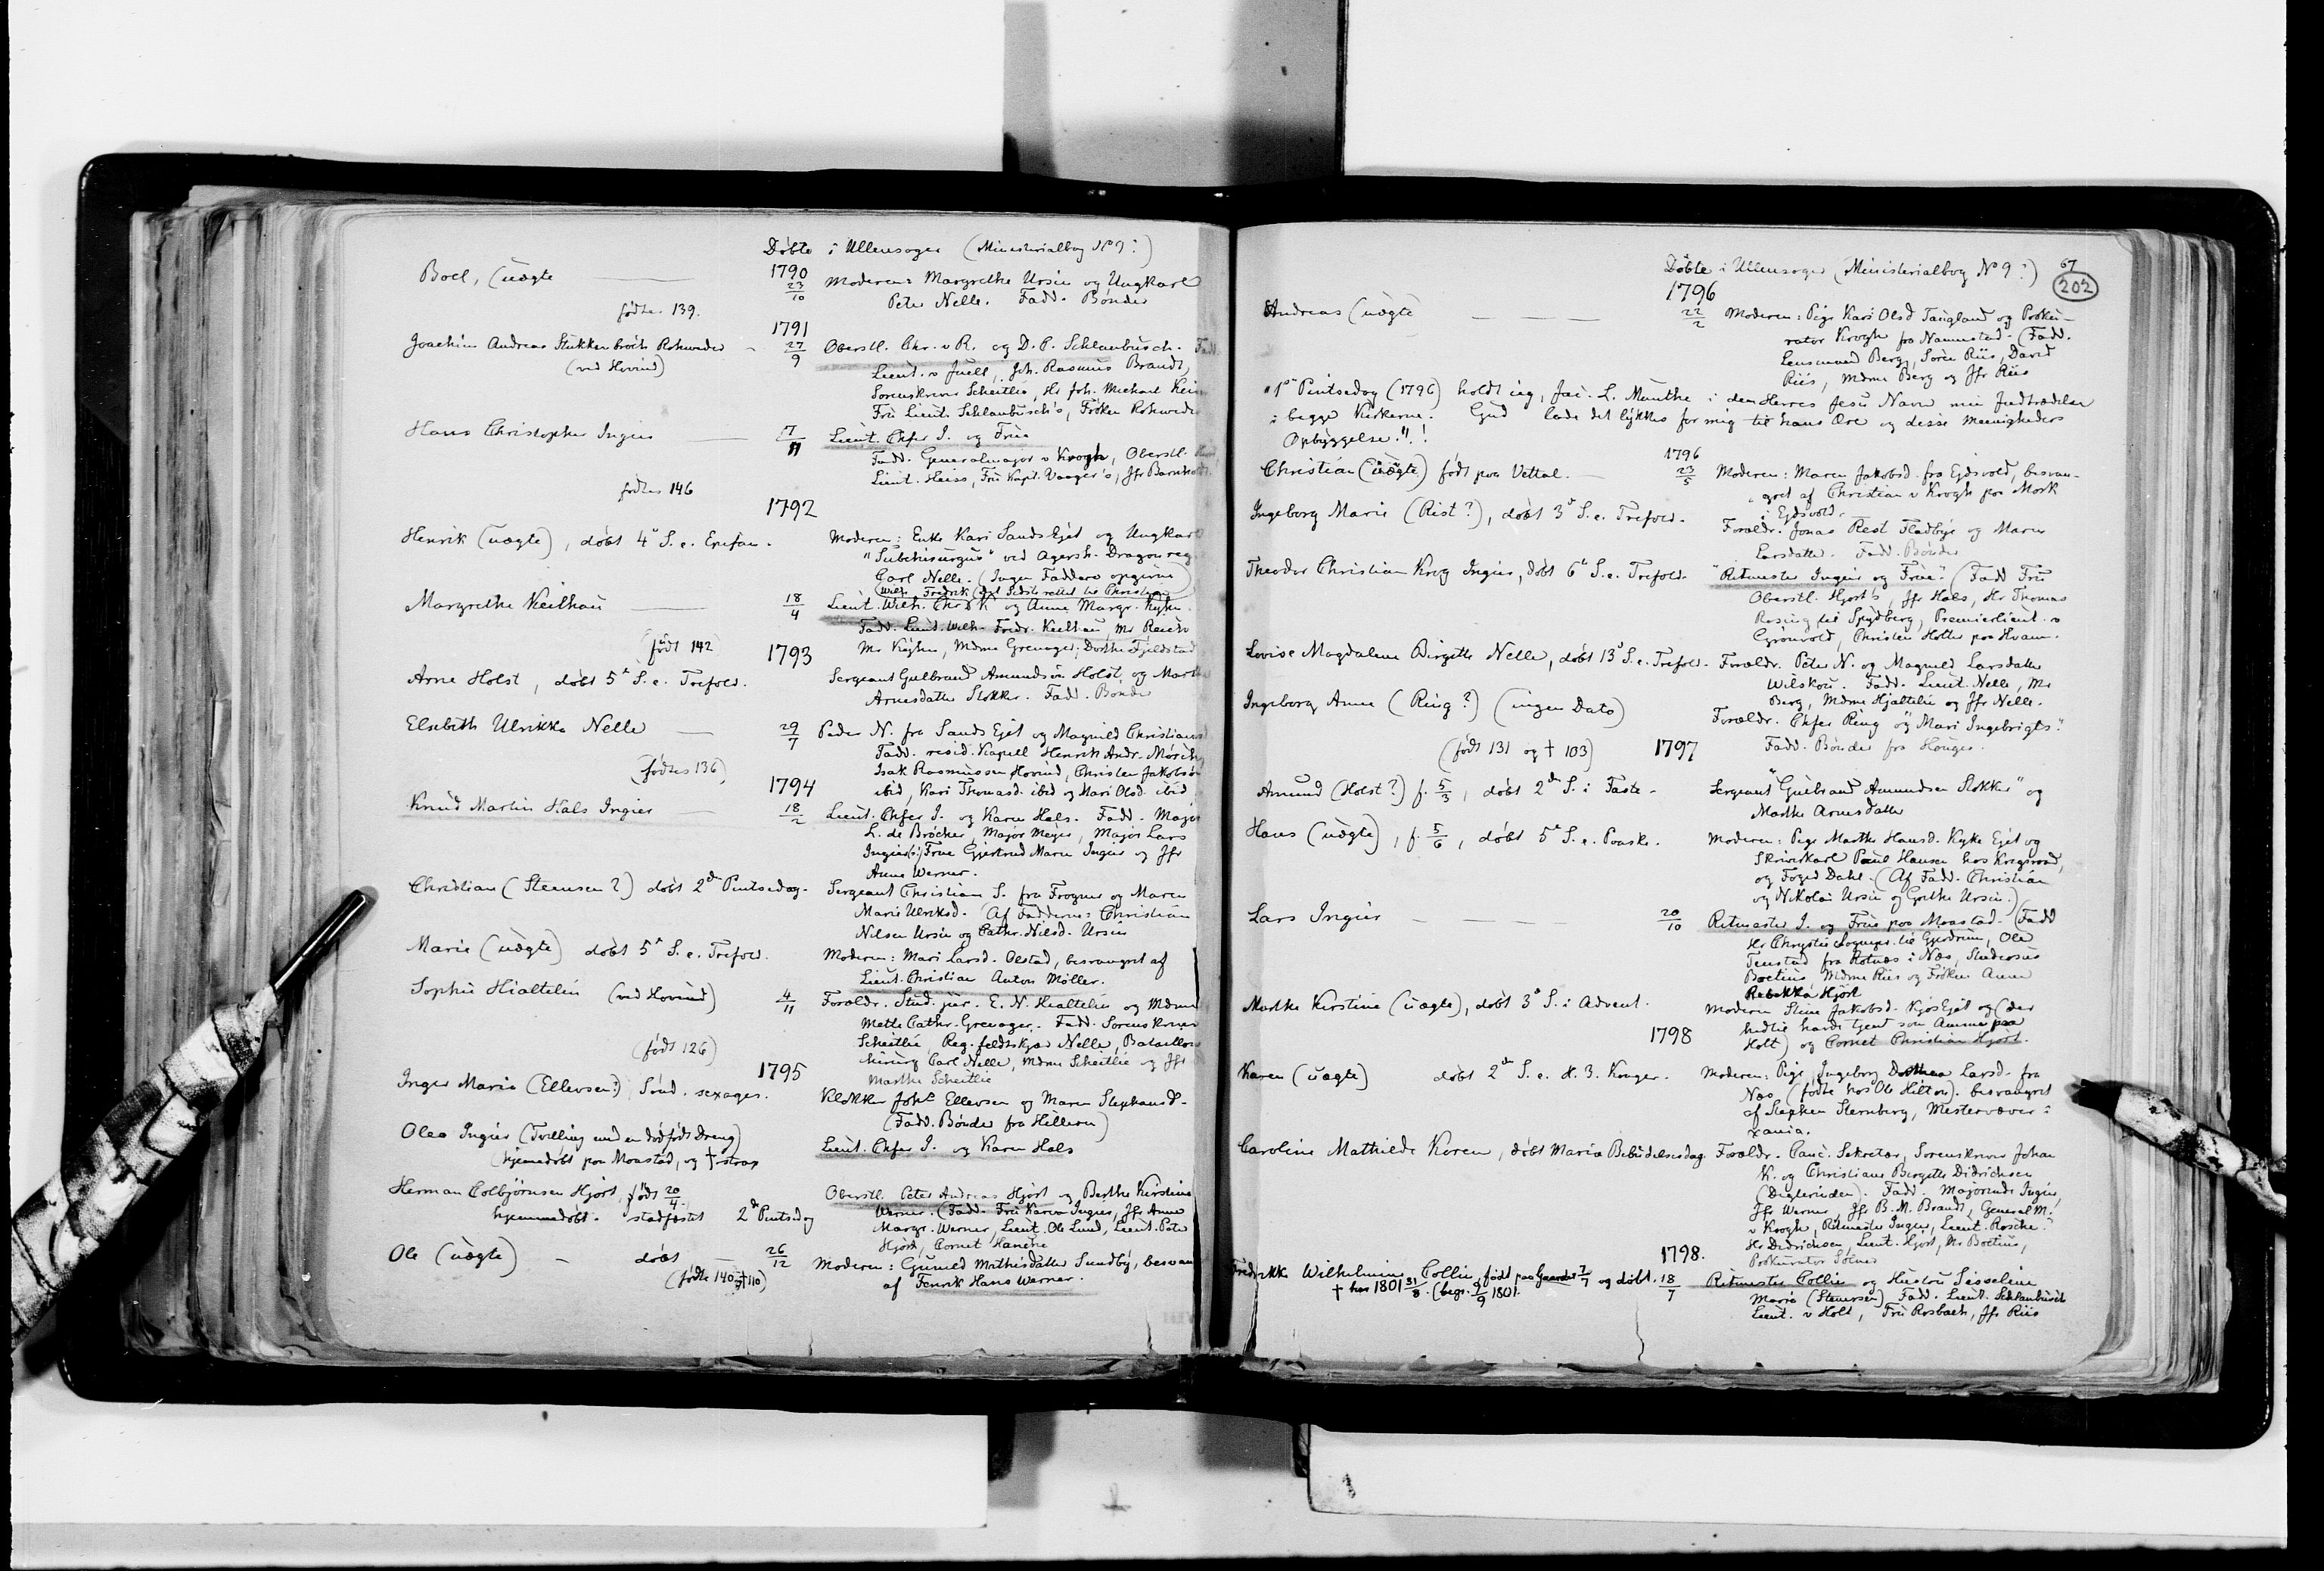 Døbte i Ullensager (Ministerialbog No 9:)
Boel, (uægte
1790
23/10
Moderen: Margrethe Ursin og Ungkarl
Peter Nelle. Fadd. Bønder
fødtes 139.
1791
Joachim Andreas Stükkenbrock Rohweder
(ved Hovind)
27/9
Oberstl. Chr. v R. og D. C. Schlanbusch. Fadd.
Lieut. v Juell, Joh. Rasmus Brandt,
Sorenskriver Scheitlie, Hr Joh. Michael
Fru Lieut. Schlanbusch's, Frøken Rohweder
Hans Christopher Ingier
7/11
Lieut. Chfer I. og Frue
Fadd. Generalmajor v Krogh, Oberstl.
Lieut. Heiss, Fru Kapt. Vaager's, Jfr
fødtes 146
1792
Henrik (uægte), døbt 4' S. e. Epifan.
Moderen: Enke Kari Sands Ejet og Ungkarl
"Subchirurgus" ved Agersh. Dragonreg
Carl Nelle. (Ingen Faddere opgivne)
(Wilh. Fredrik
Margrethe Keilhau
18/4
Lieut. Wilh. Chr. K og Anne Margr. Kyhn.
Fadd. Lieut. Wilh. Fredr. Keilhau, Mr
Mr Kyhn, Mdme Grenager, Dorthe Fjeldstad
født 142
1793
Arne Holst, døbt 5' S. e. Trefold.
Sergeant Gulbrand Amundsen Holst, og Marthe
Arnesdatter Slokker. Fadd. Bønder
Elsebeth Ulrikke Nelle
29/7
Peder N. fra Sands Ejet og Magnild Christians
Fadd. resid. Kapell Henrik Andr.
Isak Rasmussen Hovind, Christen Jakobsen
ibid, Kari Thomasd. ibid og Mari Olsd. ibid
(fødtes 136)
1794
Knud Martin Hals Ingier
18/2
Lieut. Chfer I. og Karen Hals. Fadd. Major
L. de Brøcher, Major Meyer, Major Lars
Ingier(s:) Frue Gjertrud Marie Ingier og Jfr
Anne Werner.
Christian (Steensen?) døbt 2den Pintsedag.
Sergeant Christian S. fra Frogner og Maren
Marie Ulriksd. (Af Fadderne: Christian
Nilsen Ursin og Cathr. Nilsd. Ursin
Marie (uægte) døbt 5' S. e. Trefold.
Moderen: Mari Larsd. Olstad, besvangret af
Lieut. Christian Anton Møller.
Sophie Hialtelin (ved Hovind)
4/11
Forældr. Stud. jur. E. N. Hialtelin og Mdme
Mette Cathr. Grenager. Fadd. Sorenskriver
Scheitlie, Reg. feldtskjær Nelle, Bataillons
kirurg Carl Nelle, Mdme Scheitlie og Jfr
Marthe Scheitlie
(født 126)
1795
Inger Maria (Ellevsen?) Sønd. sexages.
Klokker Johs Ellevsen og Maren Stephansd.
(Fadd. Bønder fra Hilleren)
Olea Ingier (Tvilling med en dødfødt Dreng)
(hjemmedøbt paa Monstad, og † strax
Lieut. Chfer I. og Karen Hals
Herman Colbjørnsen Hjort, født 20/4
hjemmedøbt. stadfæstet 2den Pintsedag
Oberstl. Peter Andreas Hjort og Berthe Kirstine
Werner. (Fadd. Fru Karen Ingier, Jfr Anne
Margr. Werner, Lieut. Ole Lund, Lieut. Peter
Hjort, Cornet
Ole (uægte) døbt
26/12
(fødte 140 † 110)
Moderen: Gunild Mathisdatter Sundby, besvan
af Fenrik Hans Werner.
67
202
Døbte i Ullensager (Ministerialbog No 9:)
1796
Andreas (uægte
22/2
Moderen: Pige Kari Olsd Taugland og Proku-
rator Krogh fra Nannestad. (Fadd.
Lensmand Berg, Søren Riis, David
Riis, Mdme Berg og Jfr Riis
"1ste Pintsedag (1796) holdt jeg, Jac. L. Munthe i den Herres Jesu Navn min Indtrædelse
i begge Kirkerne. Gud lade det lykkes for mig til hans Ære og disse Meenigheders
Opbyggelse."!
1796
Christian (uægte) født paa Vettal.
23/5
Moderen: Maren Jakobsd. fra Ejdsvold, besvan-
gret af Christian v Krogh paa Mork
i Ejdsvold.
Ingeborg Marie (Rist?), døbt 3' S. e. Trefold.
Forældr. Jonas Rest Fladbye og Maren
Larsdatter. Fadd. Bønder
Theodor Christian Krog Ingier, døbt 6' S. e. Trefold.
"Ritmester Ingier og Frue." (Fadd Fru
Oberstl. Hjort's, Jfr Hals, Hr Thomas
Rosing til Spydberg, Premierlieut. v
Grønvold, Christen Holter paa Hvam.
Lovise Magdalene Birgitte Nelle, døbt 13' S. e. Trefold.
Forældr. Peter N. og Magnild Larsdatter
Wilskou. Fadd. Lieut. Nelle, Mr
Berg, Mdme Hjaltelin og Jfr Nelle.
Ingeborg Anne (Ring?) (ingen Dato)
Forældr. Chfer Ring og "Mari Ingebrigts."
Fadd. Bønder fra Houger.
(født 131 og † 103)
1797
Amund (Holst?) f. 5/3, døbt 2den S. i Faste.
Sergeant "Gulbrand Amundsen Slokker" og
Marthe Arnesdatter
Hans (uægte), f. 5/6, døbt 5' S. e. Paaske.
Moderen: Pige Marthe Hansd. Kyke Ejet og
Skriverkarl Paul Hansen hos Krigsraad
og Foged Dahl. (Af Fadd. Christian
og Nikolai Ursin og Grethe Ursin.)
Lars Ingier
20/10
Ritmester I. og Frue paa Monstad. (Fadd
Hr Chrystie Sogneps. til Gjerdrum, Ole
Tenstad fra Rotnæs i Næs, Studiosus
Boetius Mdme Riis og Frøken Anne
Rebekka Hjort
Marthe Kirstine (uægte), døbt 3' S. i Advent.
Moderen Stine Jakobsd. Kjos Ejet og (der
hidtil havde tjent som Amme paa
Holt) og Cornet Christian Hjort.
1798
Karen (uægte) døbt 2den S. e. H. 3. Konger.
Moderen: Pige Ingeborg Dorthea Larsd. fra
Næs (fødte hos Ole Hilton). besvangret
af Stephen Sternberg, Mestervæver i
Xania.
Caroline Mathilde Koren, døbt Maria Bebudelsesdag.
Forældr. Canc. Sekretær, Sorenskriver Johan
K. og Christiane Birgitte Didrichsen
(Diglerüden). Fadd. Majorinde Ingier,
Jfr Werner, Jfr B. M. Brandt, General M.
v Krogh, Ritmester Ingier, Lieut. Rosche.
Hr Dedrichsen, Lieut. Hjort, Mr Boetius,
Prokurator
1798.
Fredrikke Wilhelmine Collin, født paa 2/7 og døbt.
18/7
† her 1801 31/8. (begr. 9/9 1801.
Ritmester Collin og Hustru Sisseline
Marie (Steensen) Fadd. Lieut. Schlanbusch
Lieut. v Holt, Fru Rosbach, Jfr Riis